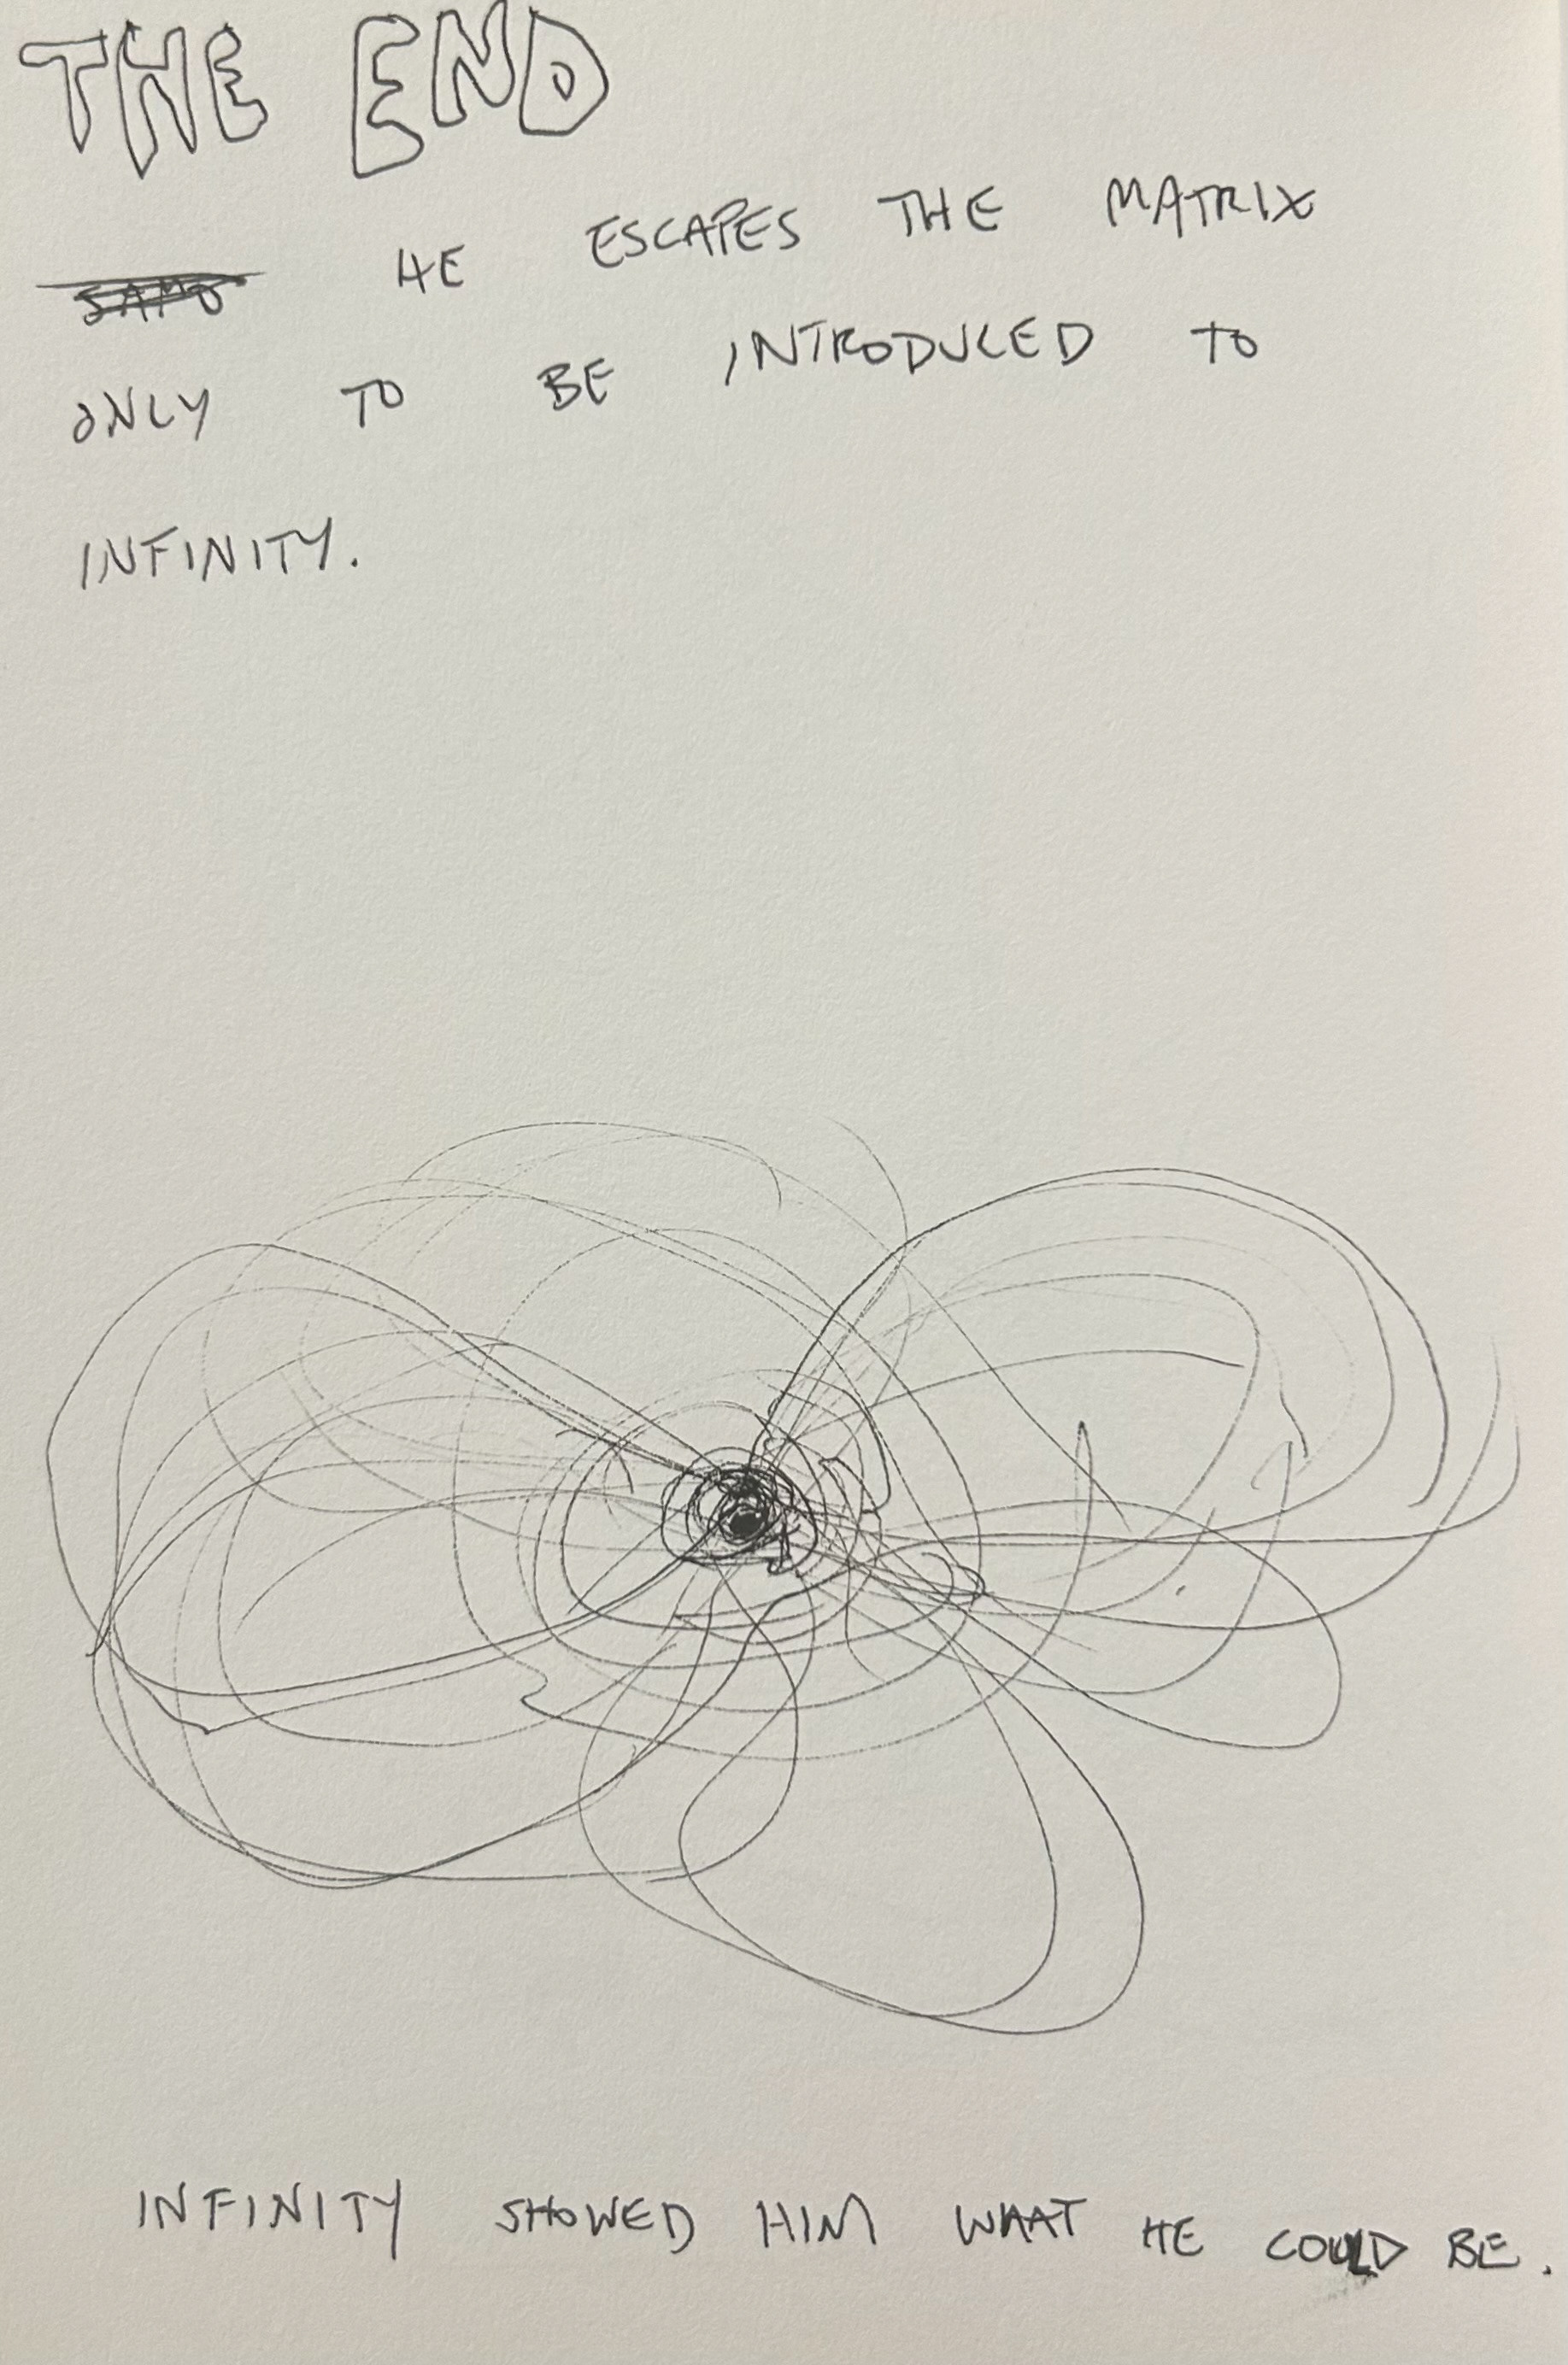 THE END
HE ESCAPES THE MATRIX
ONLY TO BE INTRODUCED TO
INFINITY.
INFINITY SHOWED HIM WHAT HE COULD BE.